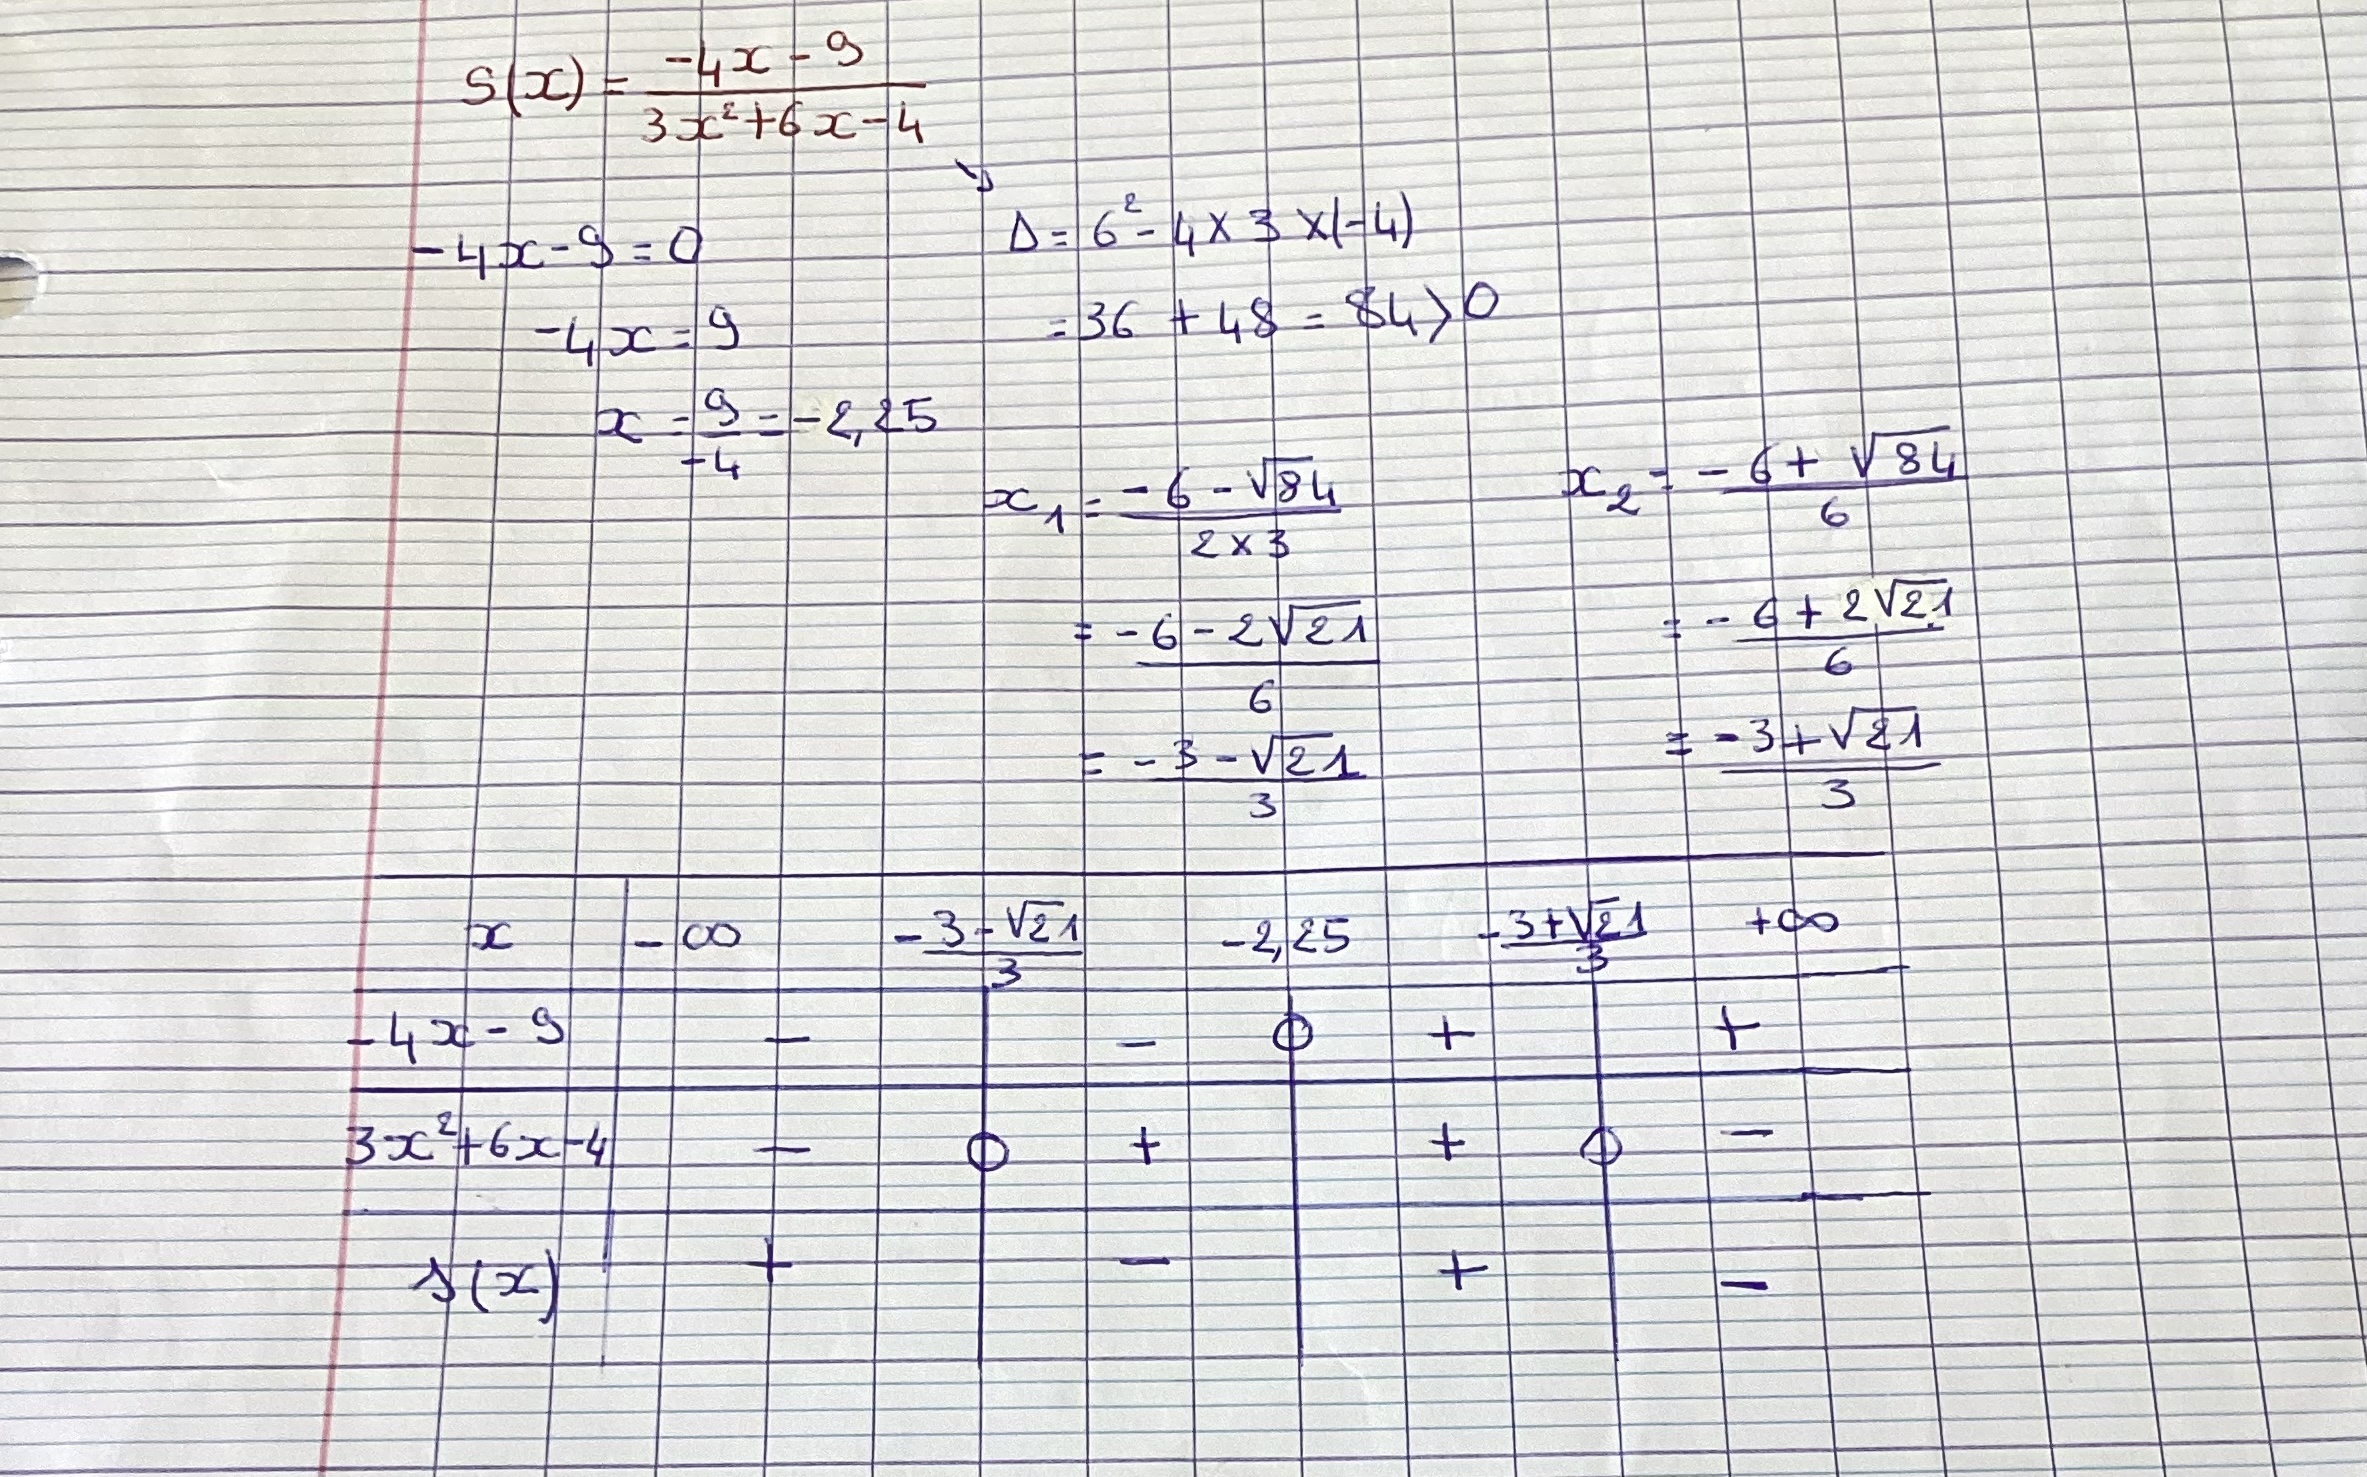 S(x) = (-4x - 9)/(3x² + 6x - 4)
-4x - 9 = 0
-4x = 9
x = 9/-4 = -2,25
Δ = 6² - 4 × 3 × (-4)
= 36 + 48 = 84 > 0
x₁ = (-6 - √84)/(2 × 3)
= (-6 - 2√21)/6
= (-3 - √21)/3
x₂ = (-6 + √84)/6
= (-6 + 2√21)/6
= (-3 + √21)/3
x -∞ (-3 - √21)/3 -2,25 (-3 + √21)/3 +∞
-4x - 9 - - 0 + +
3x² + 6x - 4 - 0 + + 0 -
s(x) + - + -